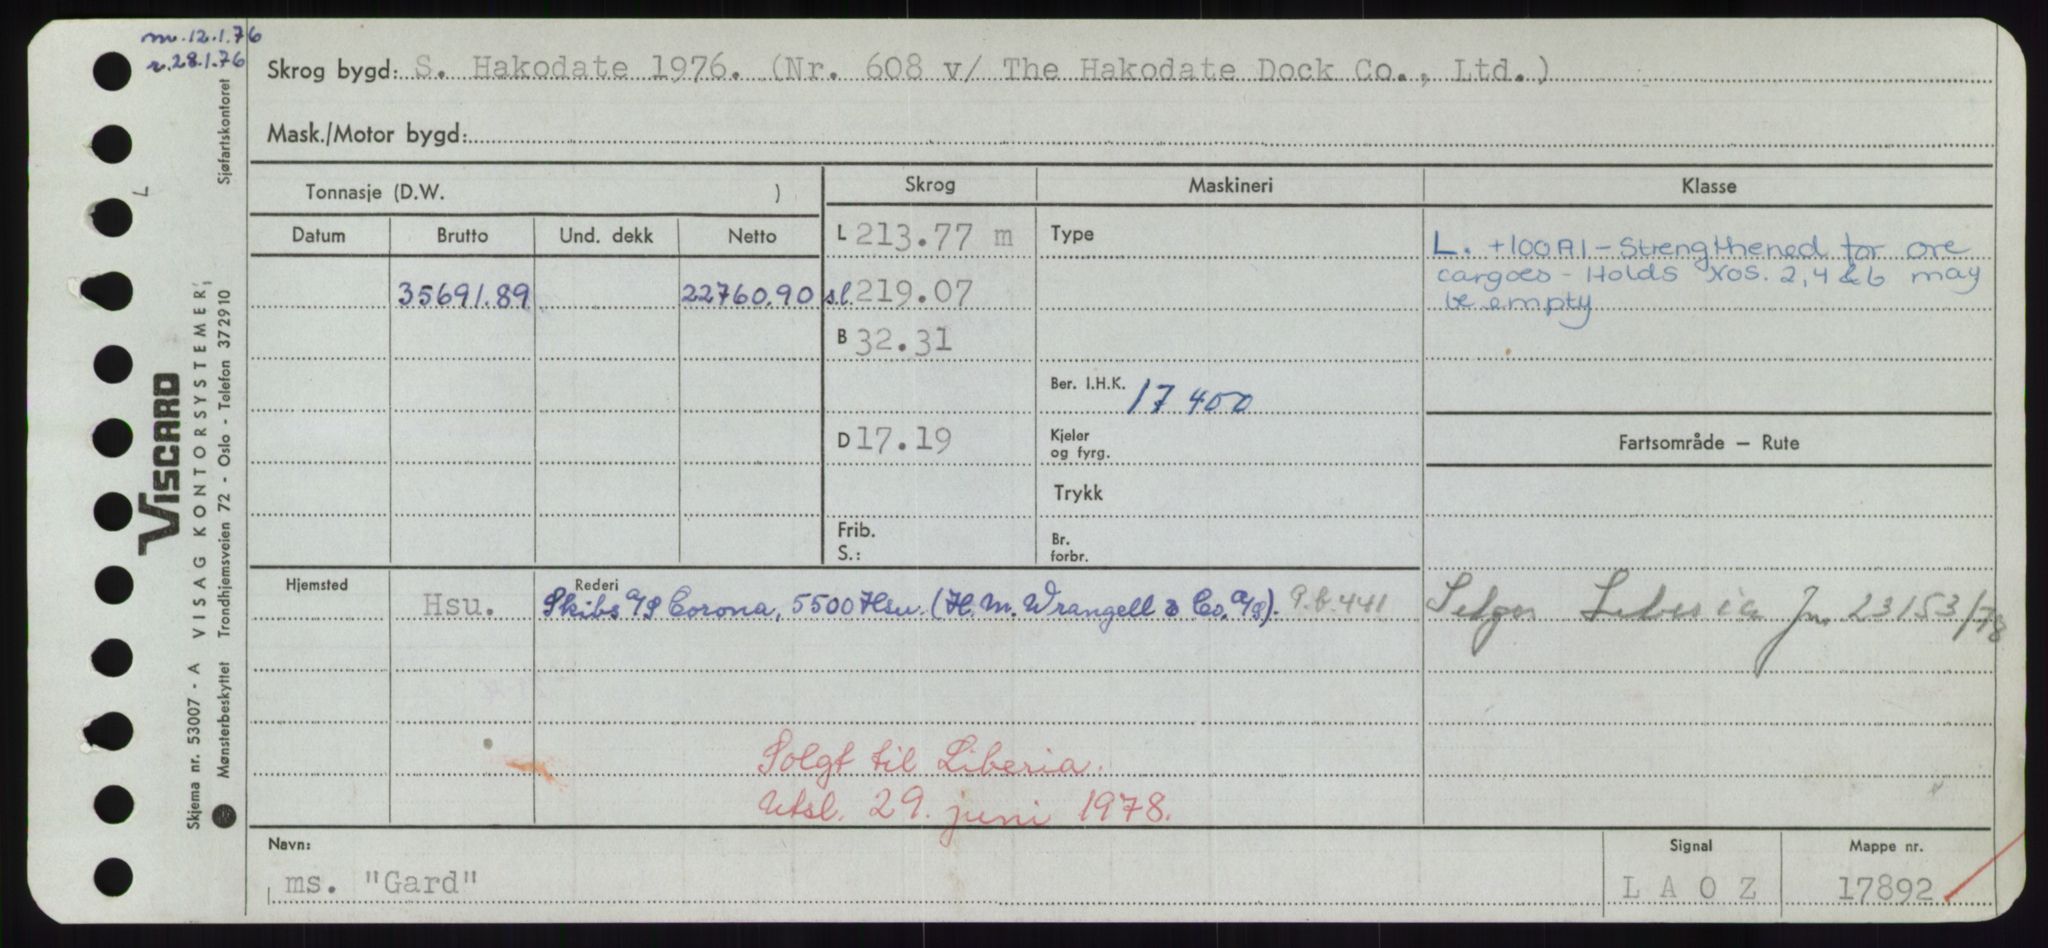 m. 12.1.76
r. 28.1.76
Skrog bygd: S. Hakodate 1976. (Nr. 608 v/ The Hakodate Dock Co., Ltd.)
Mask./Motor bygd:
Tonnasje (D.W. )
Skrog
Maskineri
Klasse
Datum
Brutto
Und. dekk
Netto
L 213.77 m
Type
L. +100A1 - Strengthened for ore
cargoes - Holds Nos. 2, 4 & 6 may
be empty
35691.89
22760.90
sl. 219.07
B 32.31
Ber. I.H.K. 17 400
D 17.19
Kjeler
og fyrg.
Fartsområde — Rute
Trykk
Frib.
S.:
Br.
forbr.
Hjemsted
Rederi
Hsu.
Skibs A/S Corona, 5500 Hsu. (H. M. Wrangell & Co. A/S). P.b. 441
Selges Liberia Jnr. 23153/78
Solgt til Liberia.
Utsl. 29. juni 1978.
Navn:
ms. "Gard"
Signal
L A O Z
Mappe nr.
17892
L
VISCARD
VISAG KONTORSYSTEMER
Skjema nr. 53007 - A
Mønsterbeskyttet Trondhjemsveien 72 - Oslo - Telefon 372910
Sjøfartskontoret